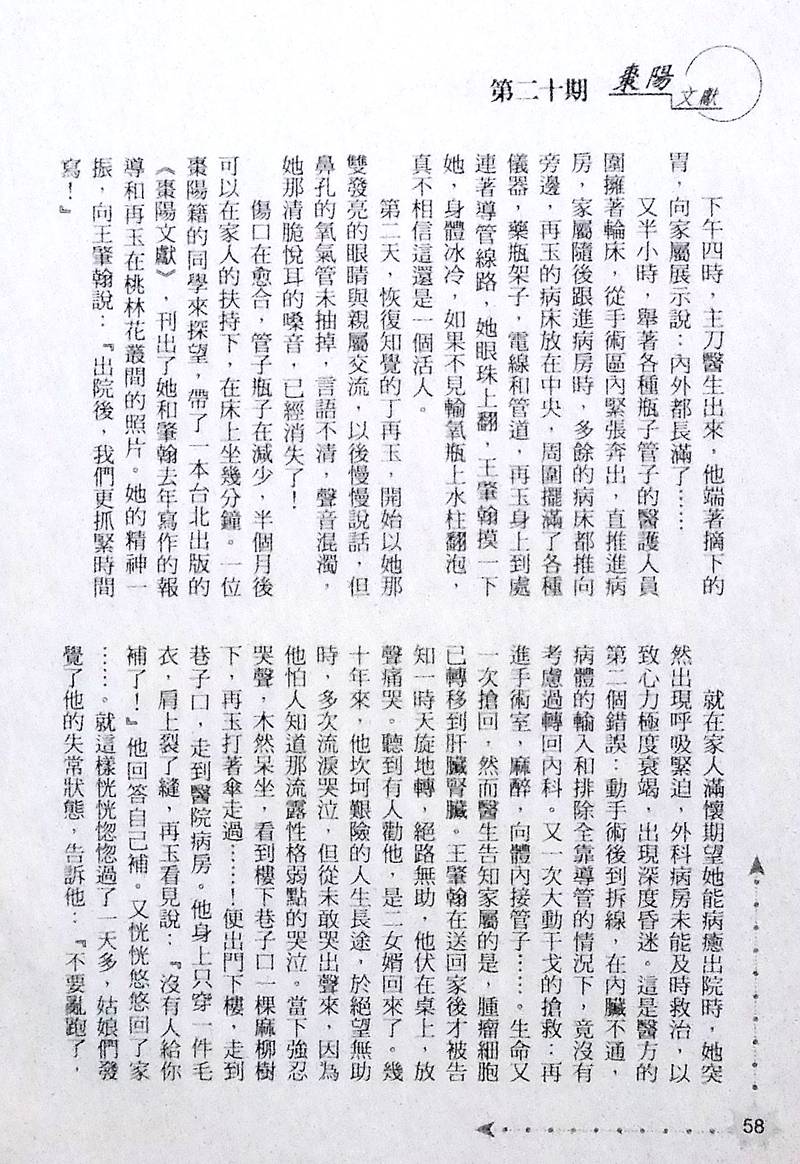 棗陽
文獻
第二十期
下午四時，主刀醫生出來，他端著摘下的
胃，向家屬展示說：內外都長滿了……
又半小時，舉著各種瓶子管子的醫護人員
圍擁著輪床，從手術區內緊張奔出，直推進病
房，家屬隨後跟進病房時，多餘的病床都推向
旁邊，再玉的病床放在中央，周圍擺滿了各種
儀器，藥瓶架子，電線和管道，再玉身上到處
連著導管線路，她眼珠上翻，王肇翰摸一下
她，身體冰冷，如果不見輸氧瓶上水柱翻泡，
真不相信這還是一個活人。
第二天，恢復知覺的丁再玉，開始以她那
雙發亮的眼睛與親屬交流，以後慢慢說話，但
鼻孔的氧氣管未抽掉，言語不清，聲音混濁，
她那清脆悅耳的嗓音，已經消失了！
傷口在愈合，管子瓶子在減少，半個月後
可以在家人的扶持下，在床上坐幾分鐘。一位
棗陽籍的同學來探望，帶了一本台北出版的
《棗陽文獻》，刊出了她和肇翰去年寫作的報
導和再玉在桃林花叢間的照片。她的精神一
振，向王肇翰說：『出院後，我們更抓緊時間
寫！』
就在家人滿懷期望她能病癒出院時，她突
然出現呼吸緊迫，外科病房未能及時救治，以
致心力極度衰竭，出現深度昏迷。這是醫方的
第二個錯誤：動手術後到拆線，在內臟不通，
病體的輸入和排除全靠導管的情況下，竟沒有
考慮過轉回內科。又一次大動干戈的搶救：再
進手術室，麻醉，向體內接管子……。生命又
一次搶回，然而醫生告知家屬的是，腫瘤細胞
已轉移到肝臟腎臟。王肇翰在送回家後才被告
知一時天旋地轉，絕路無助，他伏在桌上，放
聲痛哭。聽到有人勸他，是二女婿回來了。幾
十年來，他坎坷艱險的人生長途，於絕望無助
時，多次流淚哭泣，但從未敢哭出聲來，因為
他怕人知道那流露性格弱點的哭泣。當下強忍
哭聲，木然呆坐，看到樓下巷子口一棵麻柳樹
下，再玉打著傘走過……！便出門下樓，走到
巷子口，走到醫院病房。他身上只穿一件毛
衣，肩上裂了縫，再玉看見說：『沒有人給你
補了！』他回答自己補。又恍恍悠悠回了家
……。就這樣恍恍惚惚過了一天多，姑娘們發
覺了他的失常狀態，告訴他：『不要亂跑了，
58